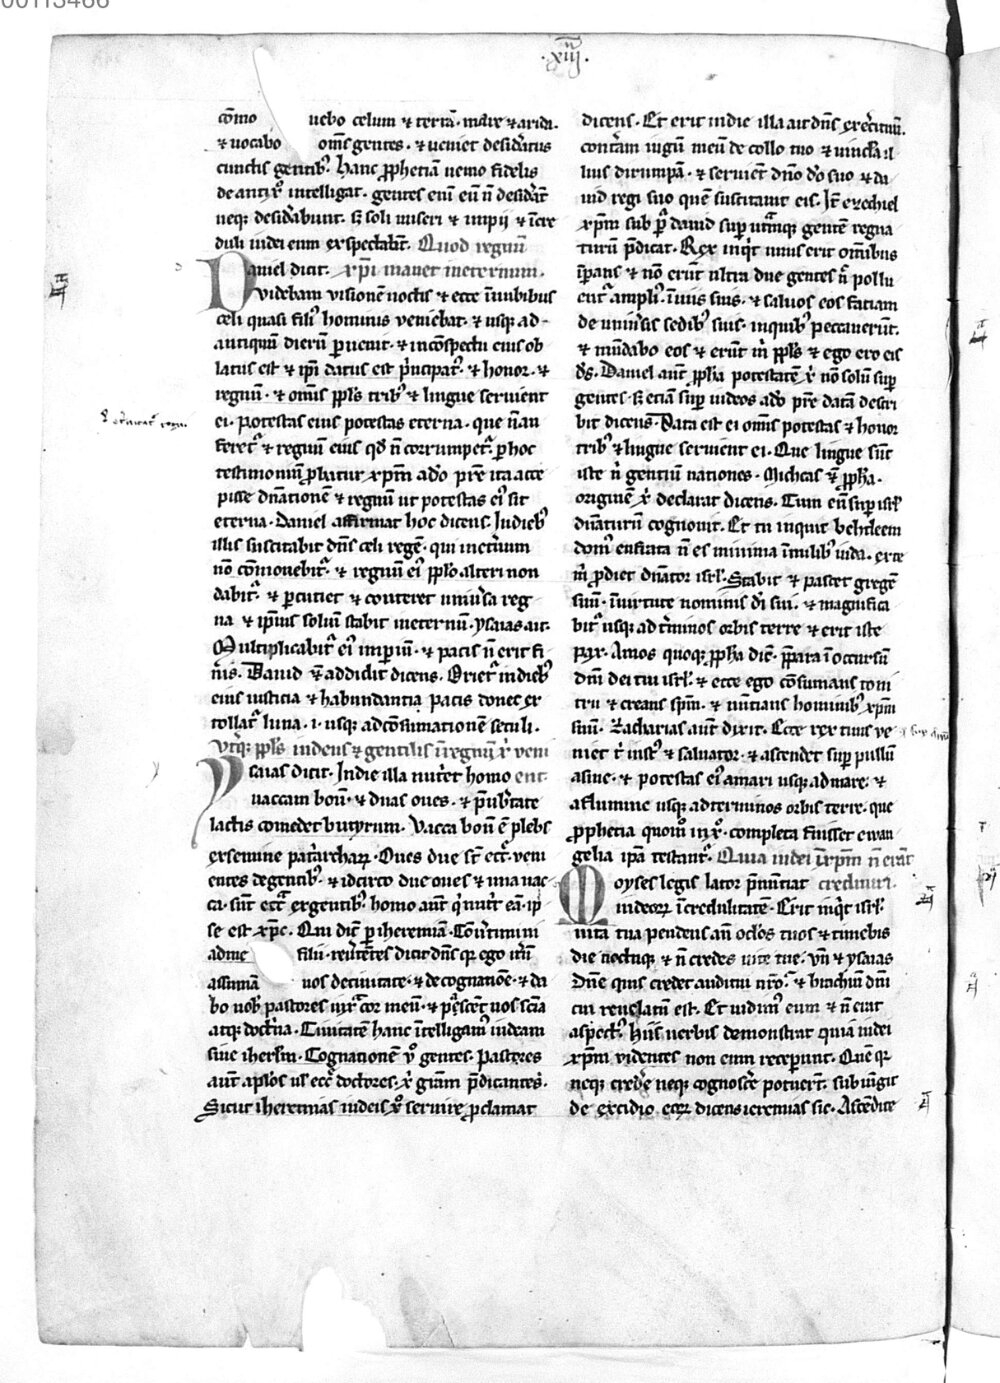 00113466
.xiij.
cōmo uebo celum ⁊ terrā. mare ⁊ aridā.
⁊ uocabo om̄s gentes. ⁊ ueniet desid̓atus
cunctis gentib᷒. Hanc ꝓphetiā nemo fidelis
de antix̓o intelligat. gentes eni eū n̄ desid̓āt
neqꝫ desid̓abunt. sꝫ soli miseri ⁊ impii ⁊ īcre
duli iudei eum exspectabt̄. Quod regnū
Daniel dicit. xp̄i manet ineternum.
Videbam visionē noctis ⁊ ecce ī nubibus
celi quasi fili᷒ hominis veniebat. ⁊ usqꝫ ad
antiquū dierū ꝑuenit. ⁊ in cōspectu eius ob
latus est ⁊ ip̄i datus est p̓ncipat᷒. ⁊ honor. ⁊
regnū. ⁊ omīs ppl̄s trib᷒ ⁊ lingue seruient
ei. potestas eius potestas eterna. que n̄ au
feret᷑ ⁊ regnū eius qd̄ n̄ corrumpet᷑. ꝑ hoc
testimoniū ꝓbatur xp̄m a dō pr̄e ita acce
pisse dn̄ationē ⁊ regnū ut potestas ei᷒ sit
eterna. Daniel affirmat hoc dicens. In dieb᷒
illis suscitabit dn̄s celi regē. qui inet̓num
nō cōmonebit᷑. ⁊ regnū ei᷒ pp̄lo alteri non
dabit᷑. ⁊ ꝑcutiet ⁊ conteret uniu̓sa reg
na ⁊ ip̄ius solum stabit ineternū. ysaias ait.
Multiplicabit᷑ ei᷒ imperiū. ⁊ pacis n̄ erit fi
nis. Dauid v̄ addidit dicens. Oriet᷑ in dieb᷒
eius iusticia ⁊ habundantia pacis donec ex
tollat᷑ luna. i. usqꝫ ad cōsumationē seculi.
Vtq̓ꝫ ppl̄s iudeus ⁊ gentilis ī regnū x̓ veni
Ysaias dicit. In die illa nut̓et homo ent.
uaccam boū. ⁊ duas oues. ⁊ p̄ ub̓tate
lactis comedet butyrum. Vacca boū ē plebs
ex semine pat̓archaꝝ. Oues due st̄ ecc̄. veni
entes de gentib᷒. ⁊ idcirco due oues ⁊ una vac
ca. sunt ecc̄a ex gentib᷒. homo aūt q̓ nut̓t eā. ip̄
se est xp̄c. Qui dic̄ ꝑ iheremiā. Cōu̓timini
ad me filii. reu̓tētes dicit dn̄s qꝛ ego uir̄
assumā uos de ciuitate. ⁊ de cognatiōe. ⁊ da
bo uob̄ pastores iux̄ cor meū. ⁊ pascēt uos scīa
atqꝫ doct̓na. Ciuitatē hanc ītelligam᷒ iudeam
siue iherl̄m. Cognationē v̓o gentes. Pastores
aūt apl̄os ul̓ ecc̄ doctores. x̓ gr̄am p̄dicantes.
Sicut iheremias iudeis x̓o seruire ꝓclamat
dicens. Et erit in die illa ait dn̄s exercituū.
cont̓am iugū meū de collo tuo ⁊ uincla il
lius dirumpā. ⁊ seruient dn̄o dō suo ⁊ da
uid regi suo quē suscitauit eis. It̄ ezechiel
xp̄m sub p̄ dauid suꝑ ut̓mqꝫ gentē regna
turū p̄dicat. Rex inq̓t unus erit om̄ibus
īꝑans ⁊ nō er̄ut ultra due gentes n̄ pollu
ent᷑ ampli᷒. īuiis suis. ⁊ saluos eos faciam
de uniu̓sis sedib᷒ suis. in quib᷒ peccauerūt.
⁊ mūdabo eos ⁊ erūt m̓ ppl̄s ⁊ ego ero eis
ds̄. Daniel aūt ꝓpha potestatē x̓ nō solū suꝑ
gentes. sꝫ etiā suꝑ iudeos a dō pr̄e datā descri
bit dicens. Data est ei omīs potestas ⁊ honor
trib᷒ ⁊ lingue seruient ei. Que lingue sūt
iste n̓ gentiū nationes. Micheas v̄ ꝓpha.
originē x̓ declarat dicens. Cum eū suꝑ isrl̄
dn̄aturū cognouit. Et tu inquit bethleem
dom᷒ eufrata n̄ es minima ī milib᷒ iuda. ex te
m̓ ꝓdiet dn̄ator isrl̄. Stabit ⁊ pascet gregē
suū. ī uirtute nominis dn̄i sui. ⁊ magnifica
bit᷑ usqꝫ ad t̓minos orbis terre ⁊ erit iste
pax. Amos quoqꝫ ꝓpha dic̄. p̄para ī occursū
dn̄i dei tui isrl̄. ⁊ ecce ego cōsumans toni
tru ⁊ creans spm̄. ⁊ nūtians hominib᷒ xp̄m
suū. Zacharias aūt dixit. Ecce rex tuus ve
niet t̓ iust᷒ ⁊ saluator. ⁊ ascendet suꝑ pullū
asine. ⁊ potestas ei᷒ a mari usqꝫ ad mare. ⁊
a flumine usqꝫ ad terminos orbis terre. que
ꝓphetia quom̄ in x̓o. completa fuisset ewan
gelia ip̄a testant᷑. Quia iudei ī xp̄m n̄ erāt
Moyses legis lator p̄nunciat credituri.
iudeoꝝ īcredulitatē. Erit inq̓t isrl̄.
uita tua pendens an̄ oclos tuos ⁊ timebis
die noctuqꝫ ⁊ n̄ credes uite tue. vn̄ ⁊ ysaias
Dn̄e quis credet auditui nr̄o. ⁊ brachiū dn̄i
cui reuelatū est. Et uidim᷒ eum ⁊ n̄ erat
aspect᷒. Hiis uerbis demonstrat quia iudei
xp̄m videntes non eum receperunt. Quē qꝛ
neqꝫ cred̓e neqꝫ cognosc̓e potuert̄. subiūgit
de excidio eoꝝ dicens ieremias sic. Ascendite